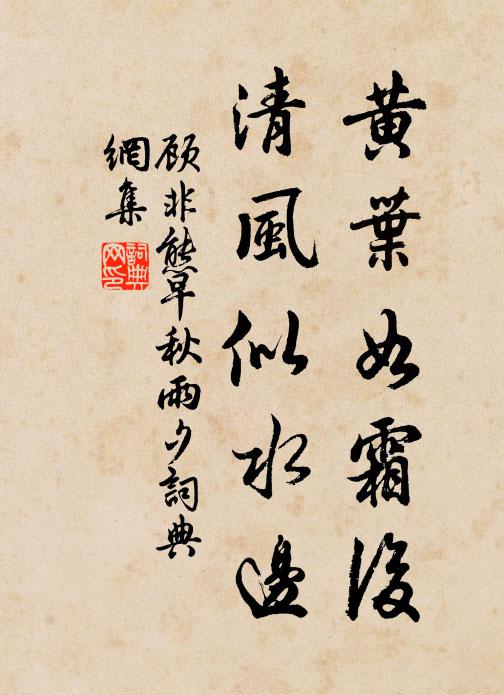 黄葉如霜後
清風似水邊
顧非熊早秋雨夕詞典
網集
詞典
网印